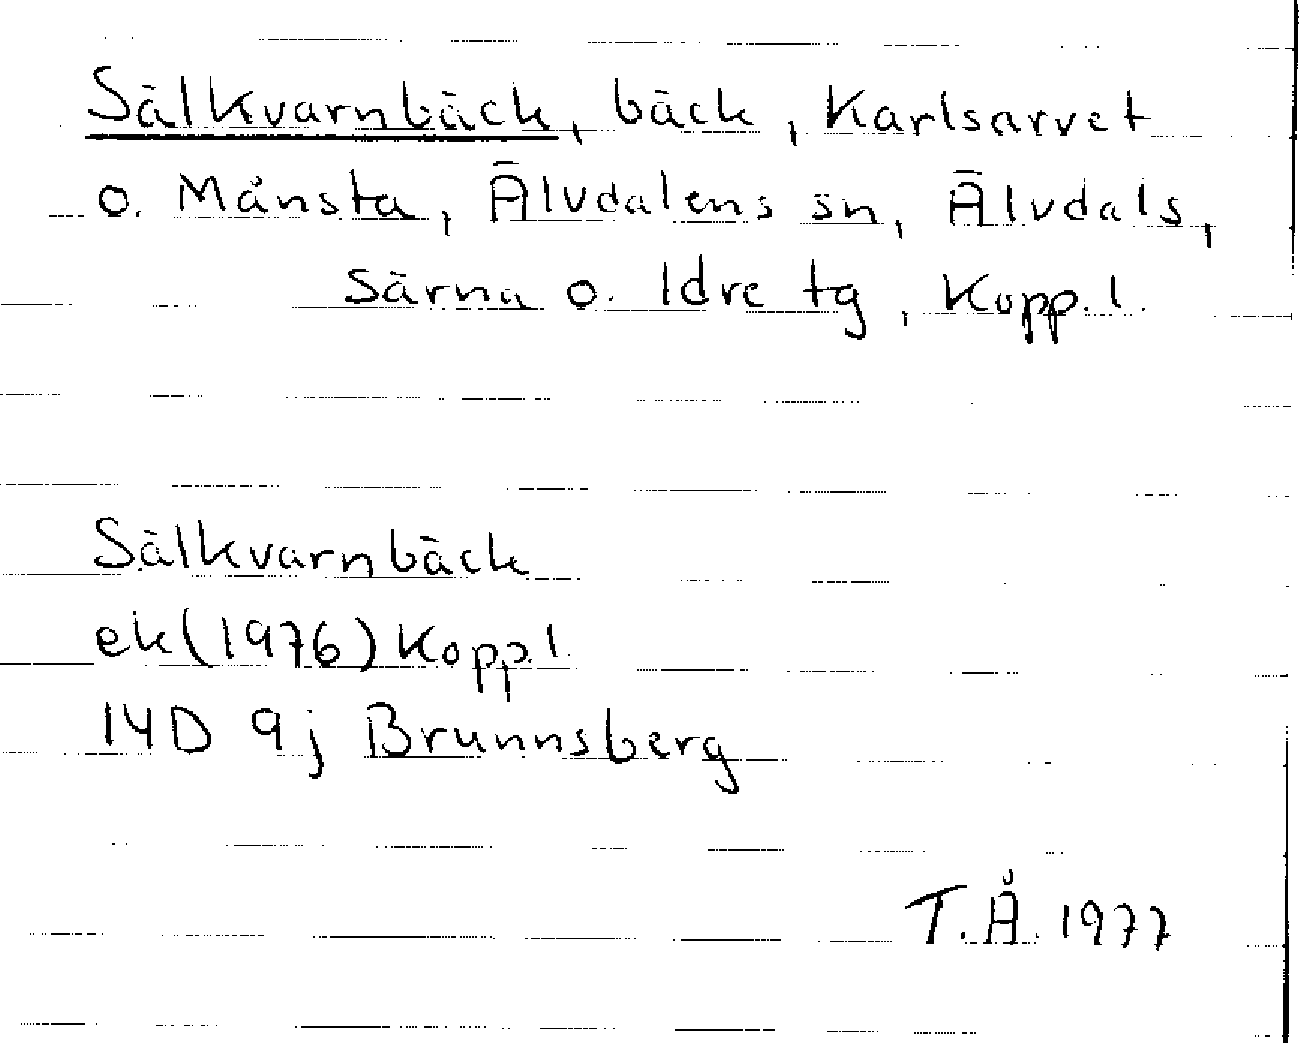 Sälkvarnbäck, bäck, Karlsarvet
o. Månsta, Älvdalens sn, Älvdals,
Särna o. Idre tg, Kopp.l.
Sälkvarnbäck
ek(1976)Kopp.l.
14D 9j Brunnsberg
T.Å. 1977